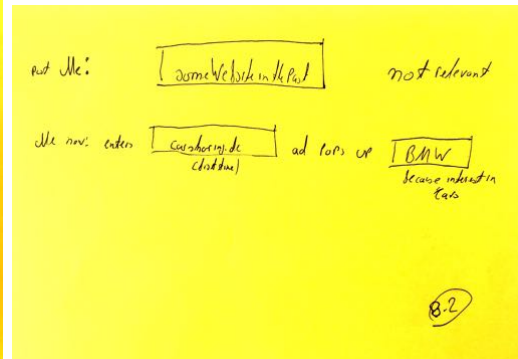 past Me: someWebsiteInthePast not relevant
Me now: enters carsharing.de ad pops up BMW
(first time) because interest in
Cars
8.2